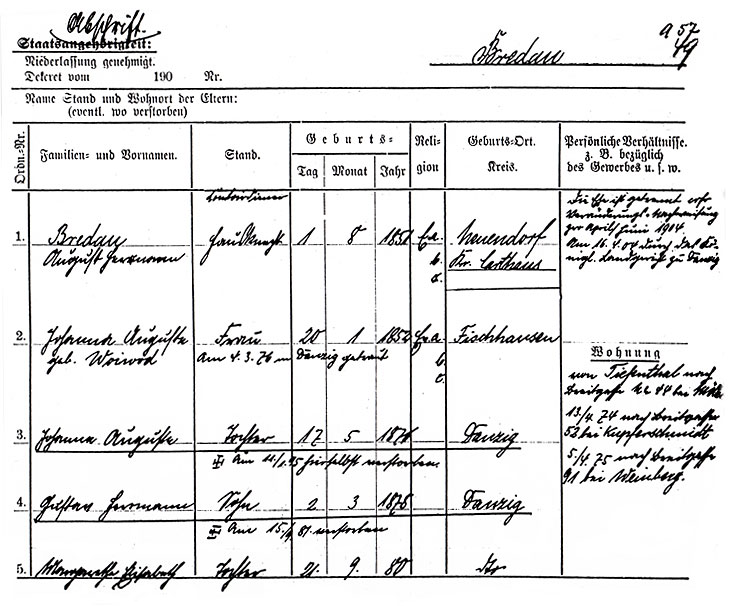 Abschrift.
Staatsangehörigkeit:
Niederlassung genehmigt.
Dekret vom 190 Nr.
Bredau
a 57
49
Name Stand und Wohnort der Eltern:
(eventl. wo verstorben)
Ordn.-Nr.
Familien- und Vornamen.
Stand.
Geburts-
Tag
Monat
Jahr
Reli-
gion
Geburts-Ort.
Kreis.
Persönliche Verhältnisse.
z. B. bezüglich
des Gewerbes u. s. w.
1.
Bredau
August Herrmann
Hausknecht
1 8 1851
Ev.
Neuendorf
Kr. Carthaus
Die Ehe ist getrennt
Veränderungs-Nachweisung
pro April/Juni 1904
Am 16.4.04 durch das Kö-
nigl. Landgericht zu Danzig
2.
Johanna Auguste
geb. Woiwod
Frau
20 1 1852
Fischhausen
Am 4.3.76 in Danzig getraut
Wohnung
von Tiefenthal nach
Breitgasse 44 bei
13/4 74 nach Breitgasse
52 bei Kupferschmidt
5/4 75 nach Breitgasse
91 bei Weinberg.
3.
Johanna Auguste
Tochter
17 5 1876
Danzig
hierselbst verstorben.
4.
Gustav Herrmann
Sohn
2 3 1878
Danzig
Am 15/4 81 verstorben
5.
Margarethe Elisabeth
Tochter
21. 9. 80
dto